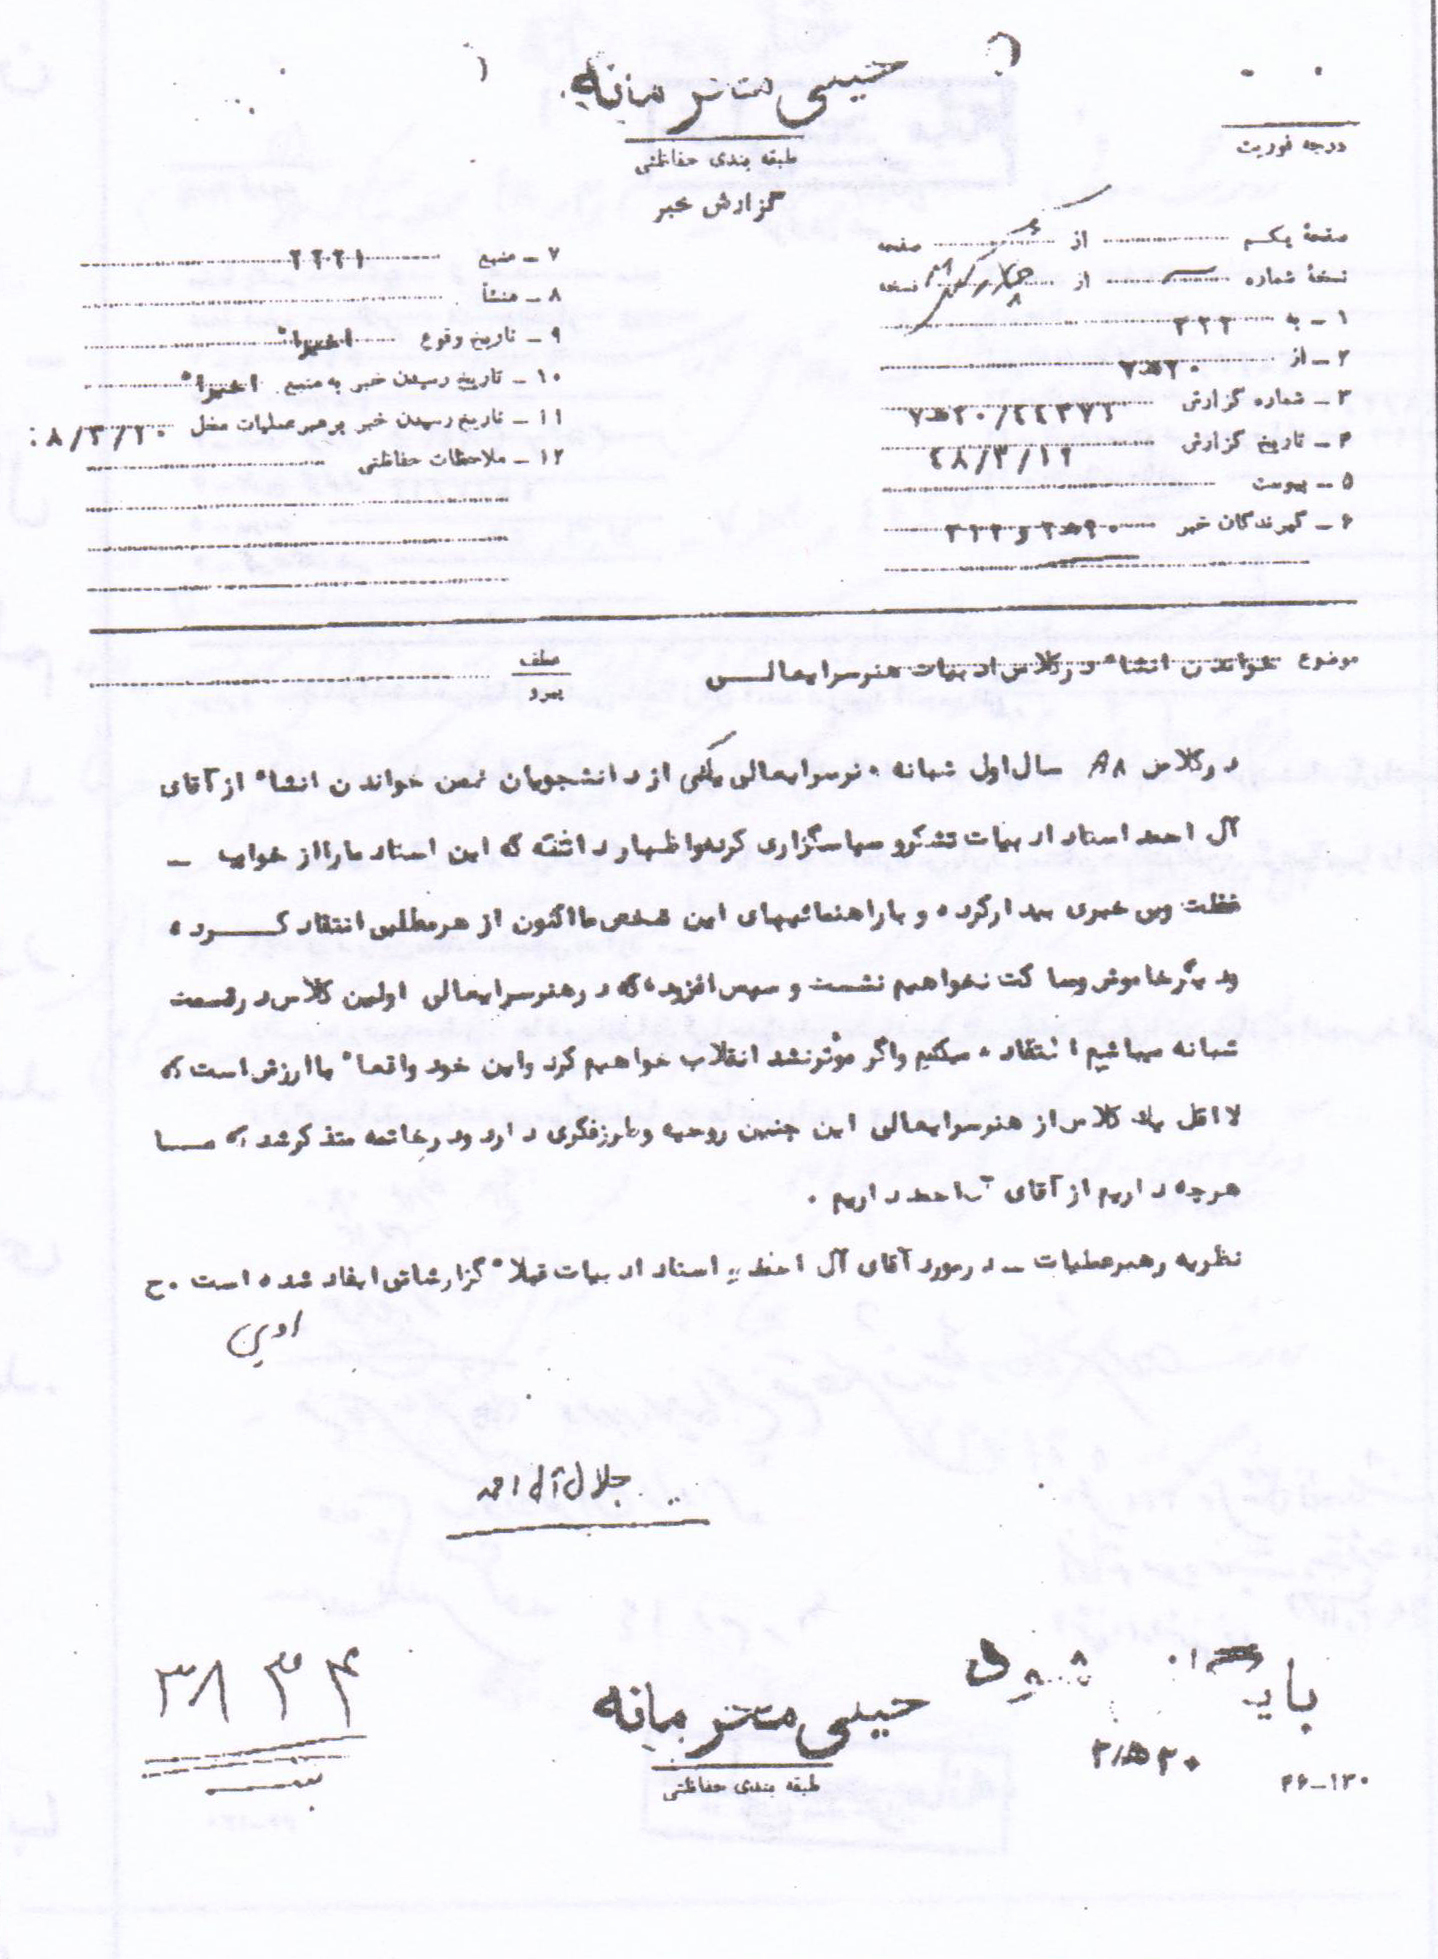 خیلی محرمانه
طبقه بندی حفاظتی
درجه فوریت
گزارش خبر
صفحهٔ یکم از صفحه
نسخهٔ شماره از نسخه
۱ - به ۳۲۲
۲ - از ۲۰ه۷
۳ - شماره گزارش ۲۰ه۷/
۴ - تاریخ گزارش ۴۸/۳/۱۲
۵ - پیوست
۶ - گیرندگان خبر
۷ - منبع
۸ - منشأ
۹ - تاریخ وقوع اخیرا"
۱۰ - تاریخ رسیدن خبر به منبع اخیرا"
۱۱ - تاریخ رسیدن خبر به رهبر عملیات محل ۸/۳/۱۰
۱۲ - ملاحظات حفاظتی
موضوع خواندن انشاء در کلاس ادبیات هنرسرایعالی
عطف
پیرو
در کلاس A۸ سال اول شبانه هنرسرایعالی یکی از دانشجویان ضمن خواندن انشاء از آقای
آل احمد استاد ادبیات تشکر و سپاسگزاری کرده و اظهار داشته که این استاد ما را از خواب -
غفلت و بی خبری بیدار کرده و با راهنمائیهای این شخص ما اکنون از هر مطلبی انتقاد کرده
و دیگر خاموش و ساکت نخواهیم نشست و سپس افزوده که در هنرسرایعالی اولین کلاس در قسمت
شبانه میباشیم انتقاد میکنیم و اگر موثر نشد انقلاب خواهیم کرد و این خود واقعا" با ارزش است که
لااقل یک کلاس از هنرسرایعالی این چنین روحیه و طرز فکری دارد و در خاتمه متذکر شد که ما
هر چه داریم از آقای آل احمد داریم .
نظریه رهبر عملیات - در مورد آقای آل احمد استاد ادبیات قبلا" گزارشاتی ایفاد شده است . ح
جلال آل احمد
۳۸۳۴
خیلی محرمانه
طبقه بندی حفاظتی
۲۰ه۳
۳۶-۱۳۰